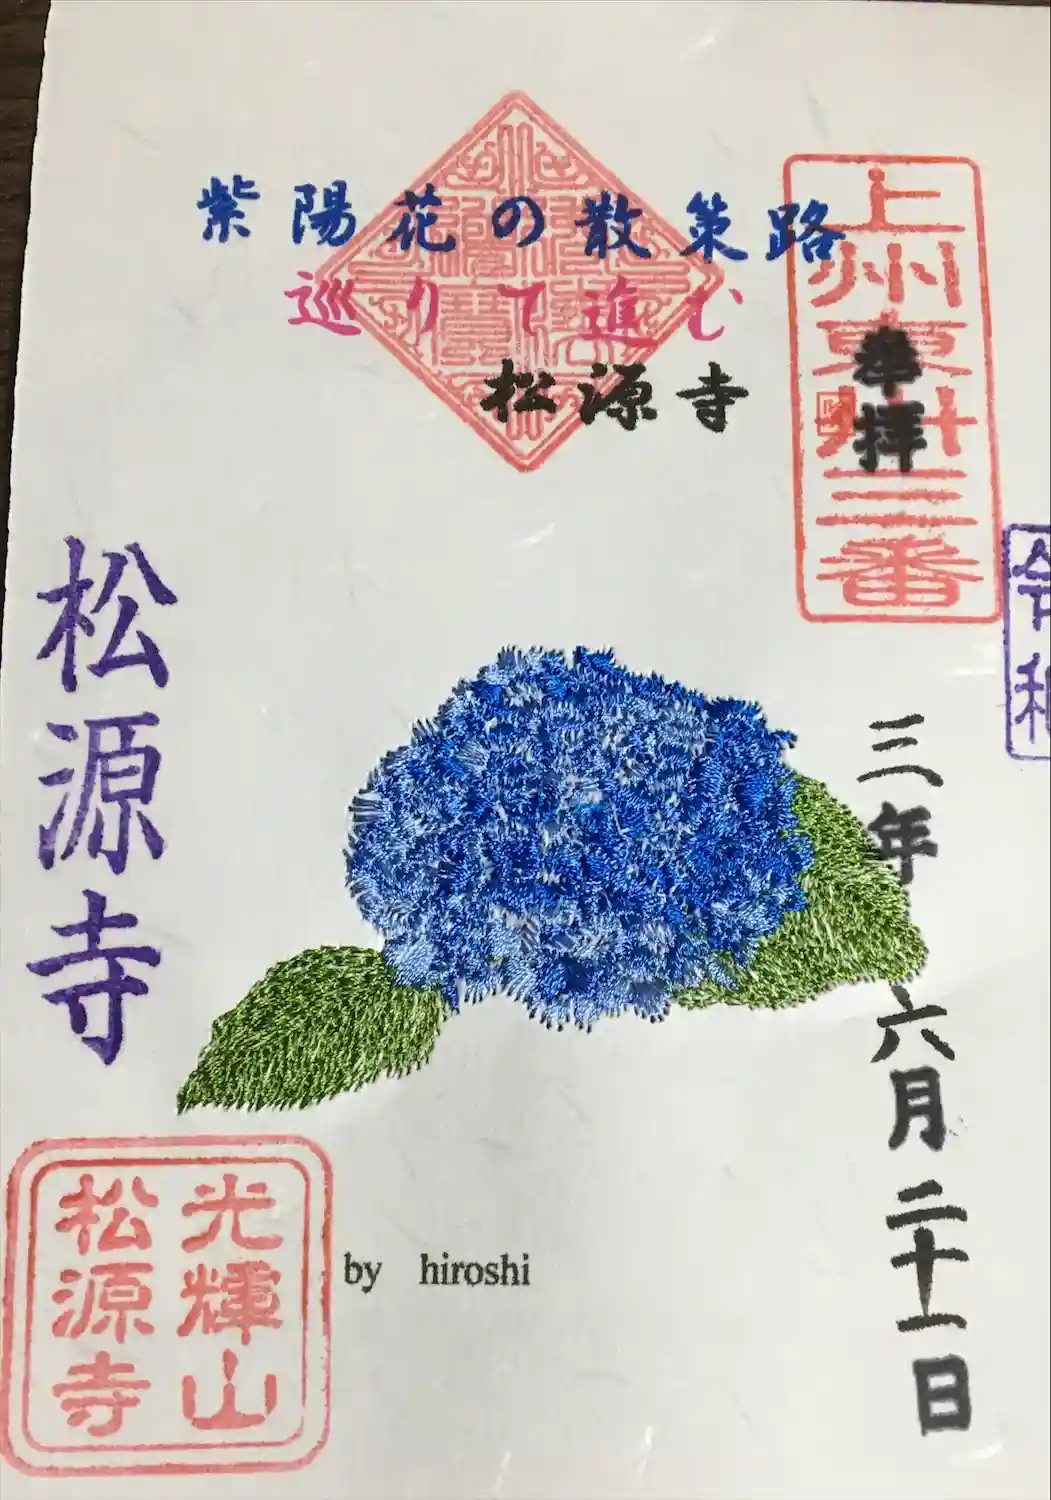 紫陽花の散策路
巡りて進む
松源寺
上州東卅三番
奉拝
令和
三年 六月二十一日
松源寺
光輝山
松源寺
by hiroshi